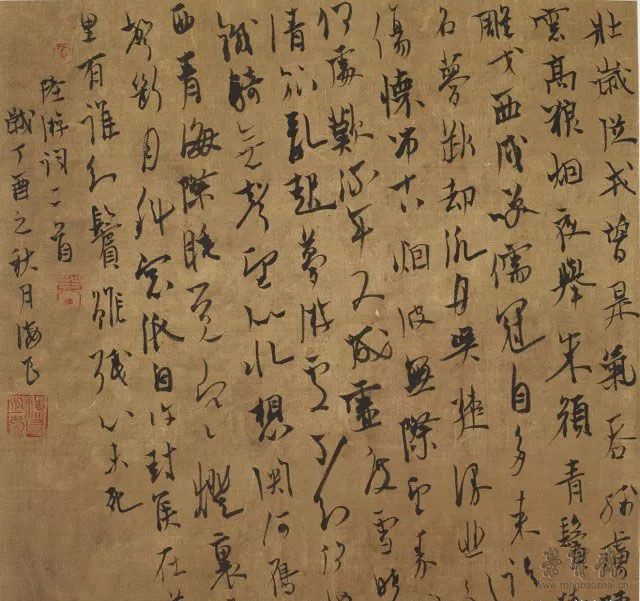 壯歲從戎曾是氣吞殘虜陣
雲高狼烟夜舉朱顏青鬢擁
雕戈西戍笑儒冠自多來誤
名夢斷却汎舟吳楚漫悲
傷懷吊古烟波無際望秦
何處歎流年又成虛度雪曉
清笳亂起夢游處不知何
鐵騎無聲望似水想關河雁
西青海際睡覺寒燈裏
聲斷月斜窗紙自許封侯在
里有誰知鬢雖殘心未死
陸游詞二首
歲丁酉之秋月海
荣宝斋
www.rongbaozhai.cn